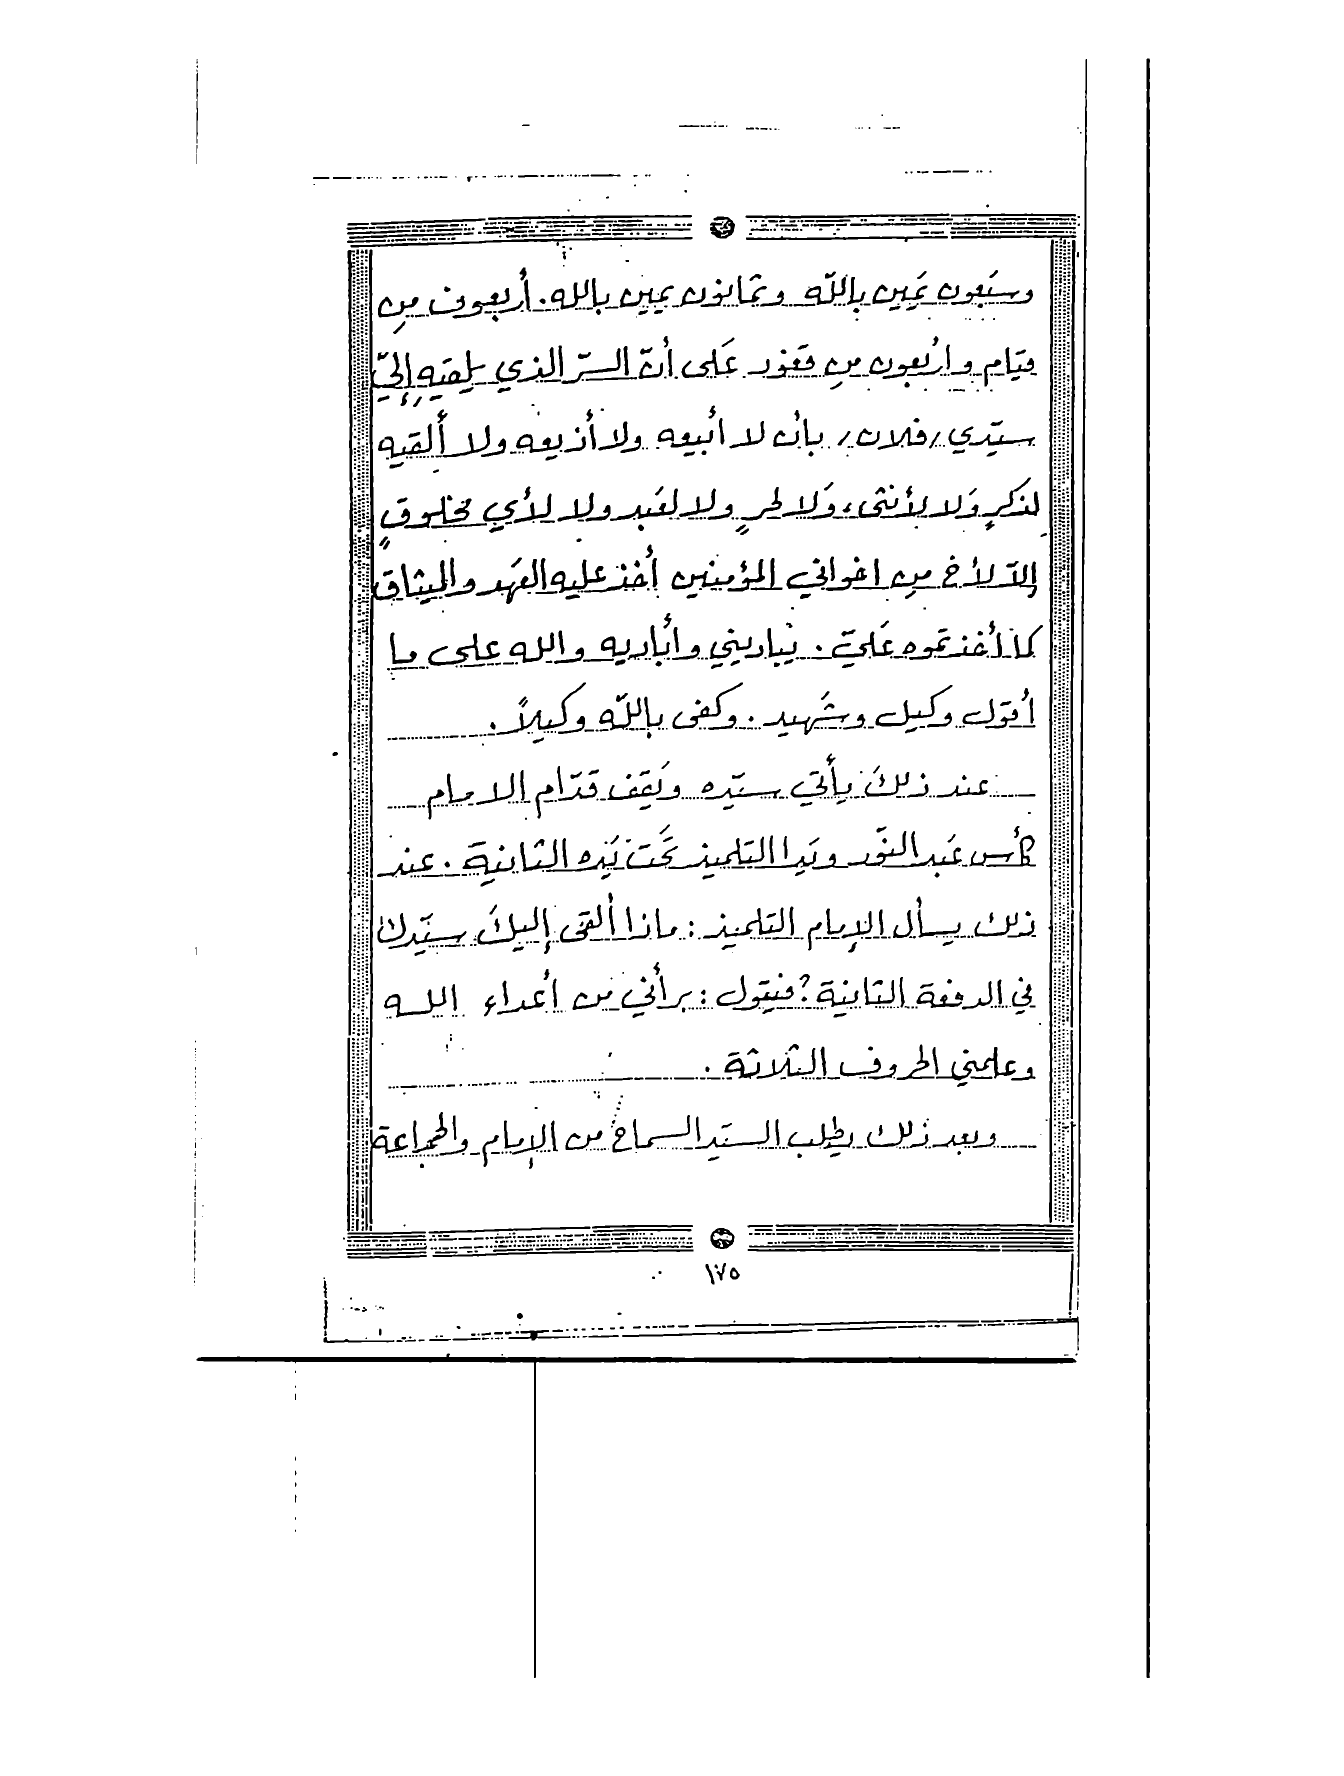 وسَبعون يَمين بالله وثمانون يمين بالله. أربعون من
قيَام واربعون من قعَود عَلى أنّ السرّ الذي يلقيه إليّ
سيّدي /فلان/ بأن لا أبيعه ولا أذيعه ولا ألقيه
لذكرٍ وَلا لأنثى، وَلا لحرٍ ولا لعَبد ولا لأي مخلوقٍ
إلاّ لأخ من اخواني المؤمنين أخذ عليه العَهد والميثاق
كما أخذتموه عَليّ. يباديني وأباديه والله على ما
أقول وكيل وشَهيد. وكفى بالله وكيلاً.
عند ذلكَ يأتي سيّده وَيقف قدّام الامام
كأس عَبد النّور ويَدا التلميذ تحَت يَده الثانية. عند
ذلك يسأل الإمام التلميذ: ماذا ألقى إليكَ سيّدك
في الدفعة الثانية؟ فيقول: برأني من أعداء الله
وعلمني الحروف الثلاثة.
وبعد ذلك يطلب السيّد السماح من الإمام والجماعة
١٧٥